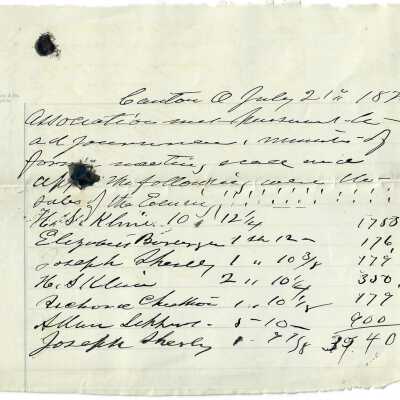 Canton O July 21st 187
Association met pursuant to
adjournment, minutes of
former meeting read and
app the following were the
sales of the Evening
H. S. Kline 10 " 12 1/4 1753
Elizabeth 1 sh 12 176
Joseph Sherby 1 " 10 3/8 179
H. S Kline 2 " 10 1/4 350
1 " 10 1/8 179
Allen 5 - 10 - 900
Joseph Sherby 1 - 9 7/8 3940